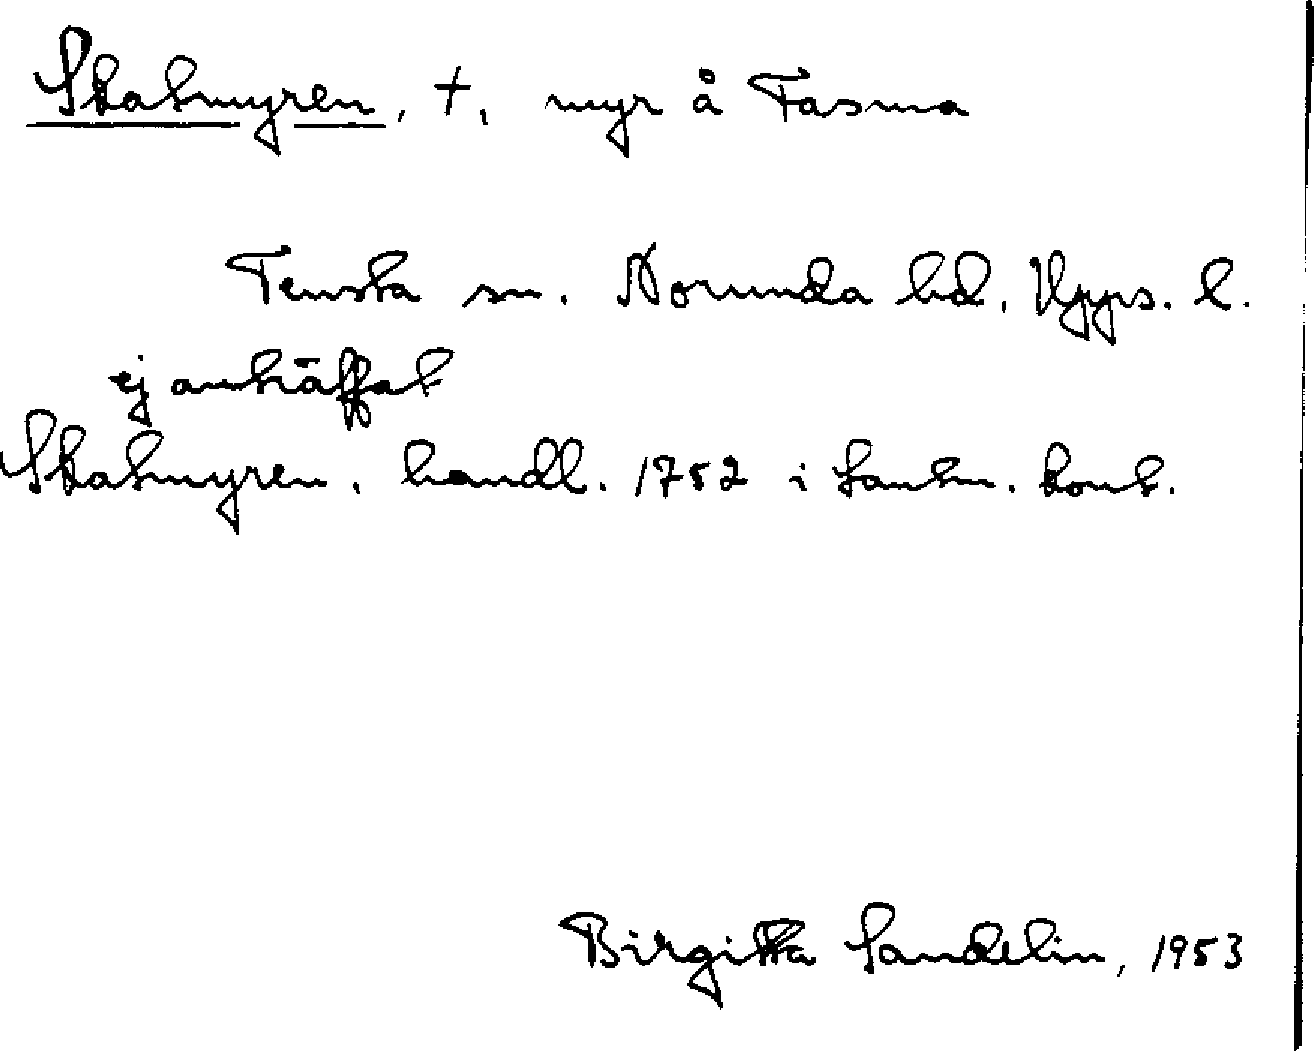 Skatmyren, †, myr å Fasma
Tensta sn. Norunda hd. Upps. l.
ej anträffat
Skatmyren. handl. 1752 i Lantm. kont.
Birgitta Sandelin, 1953